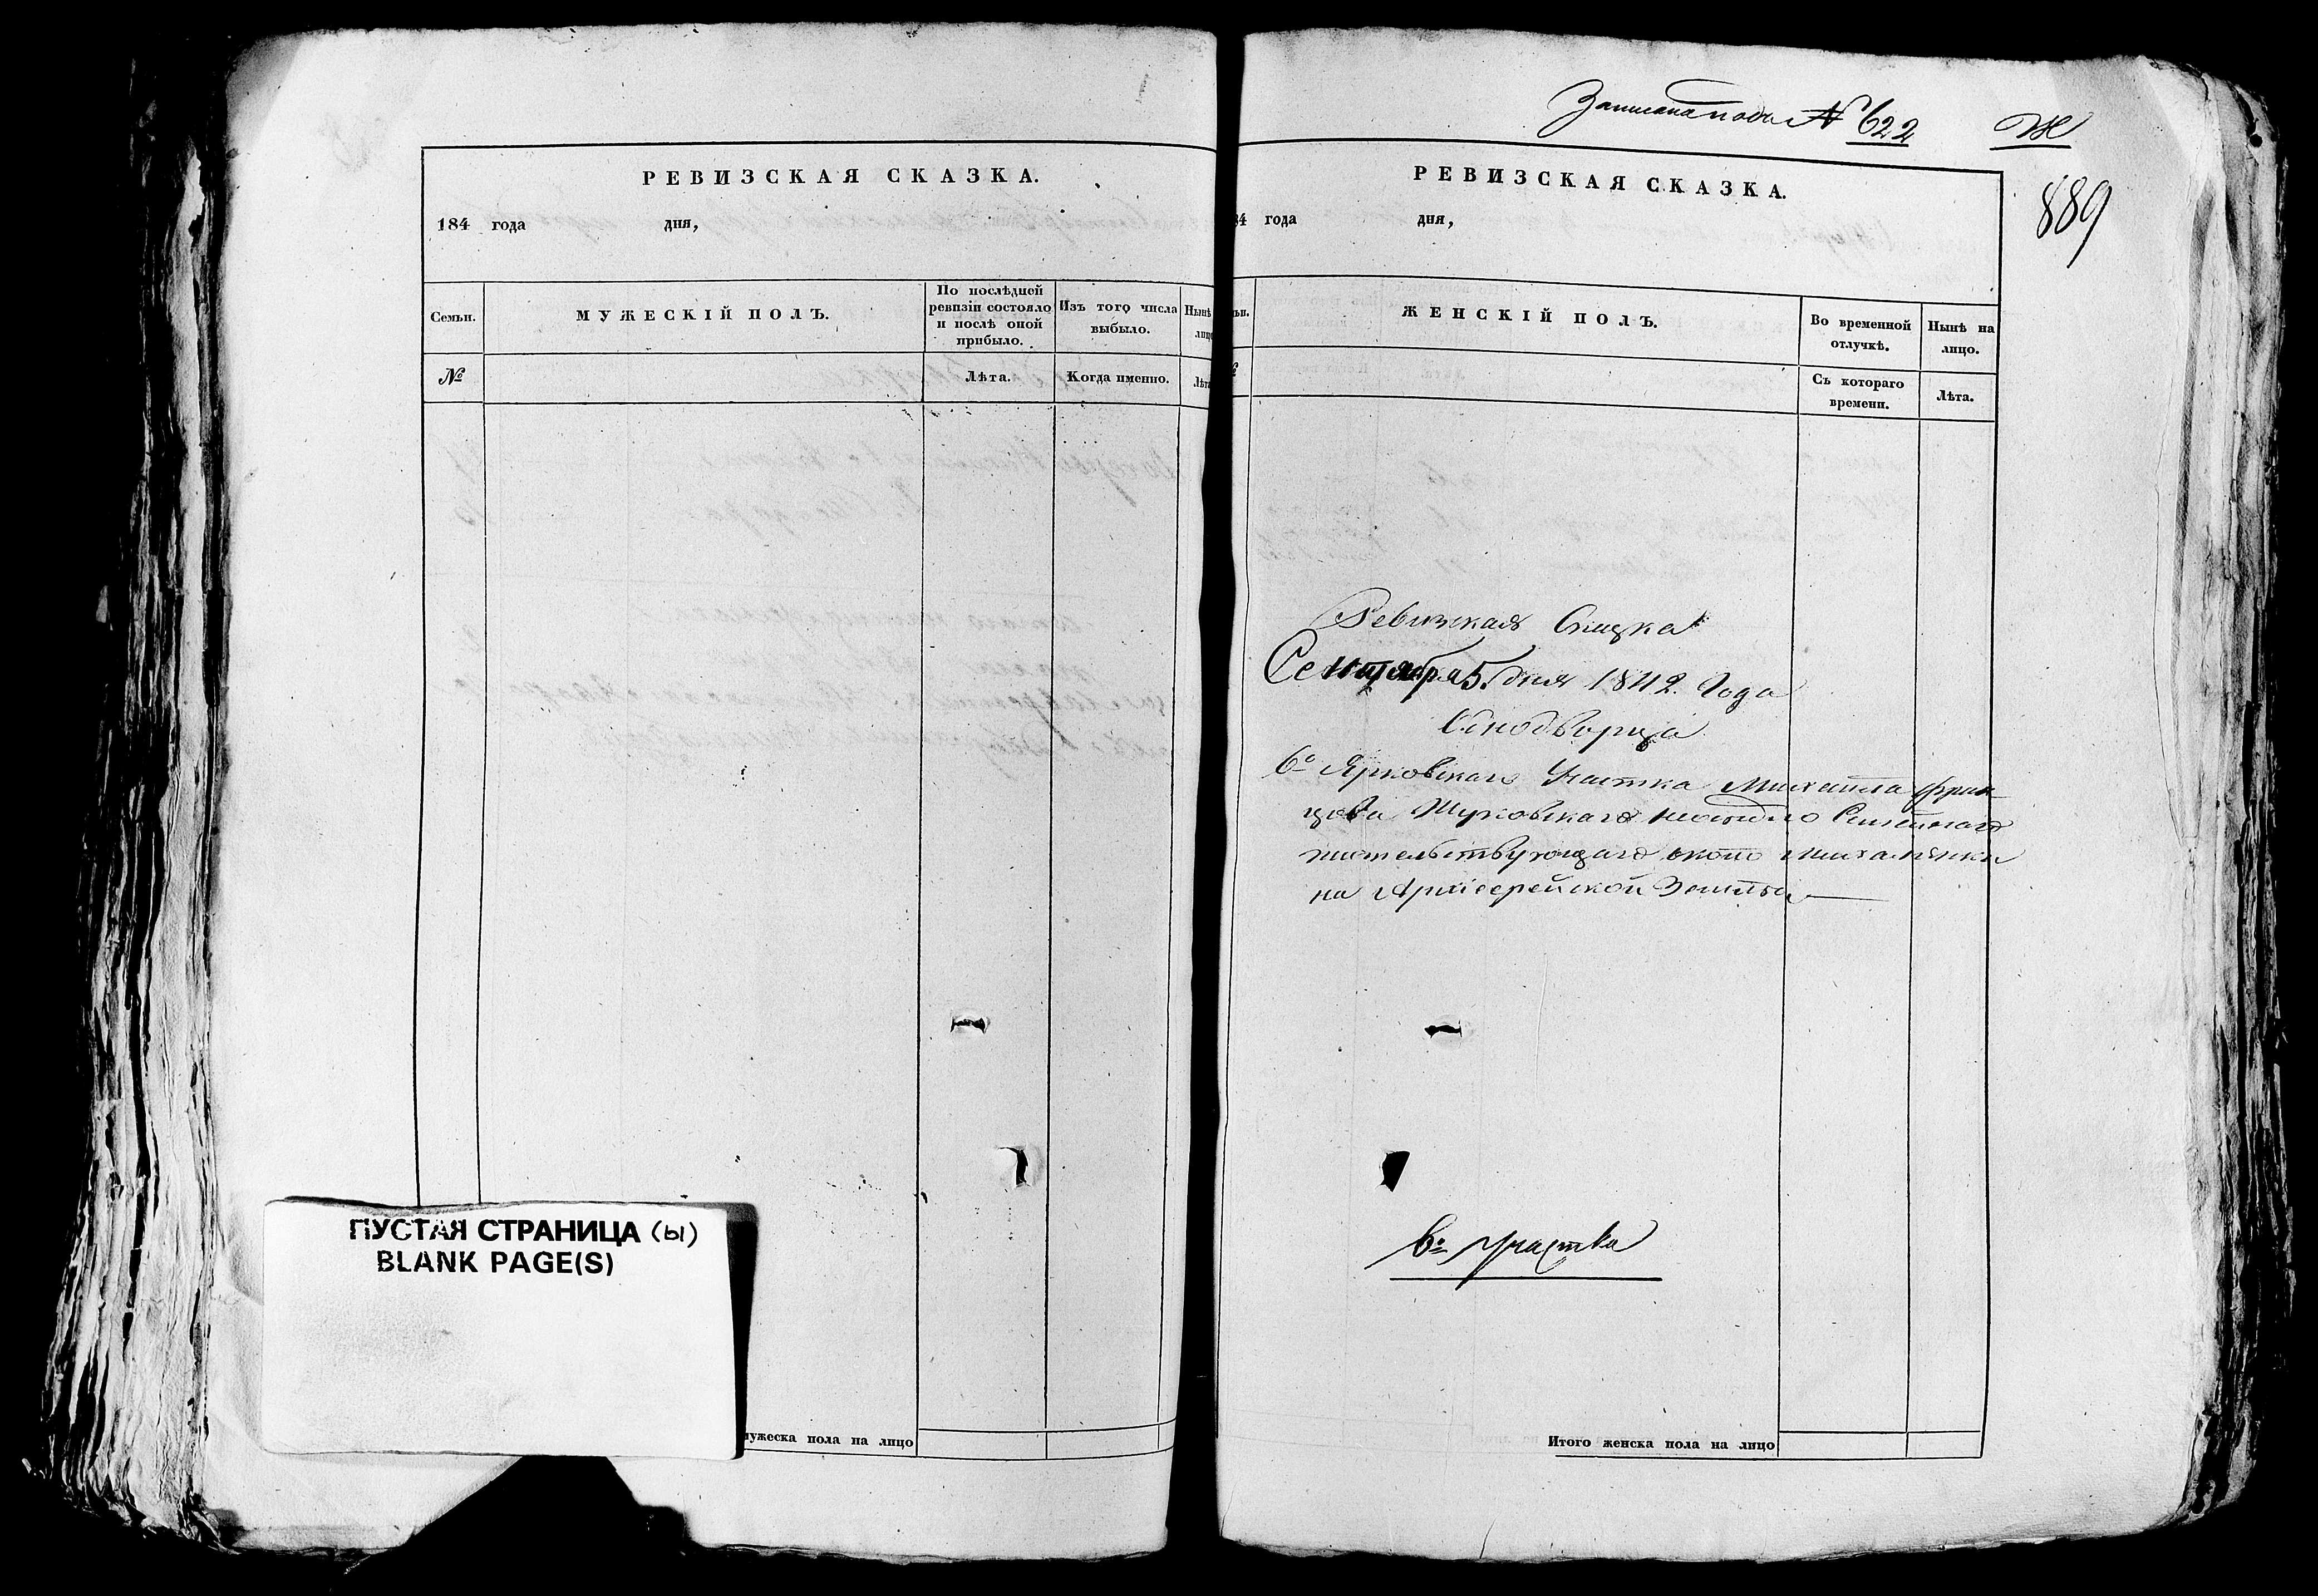 РЕВИЗСКАЯ СКАЗКА.
184 года дня,
Семьи.
МУЖЕСКІЙ ПОЛЪ.
По послѣдней ревизіи состояло и послѣ оной прибыло.
Изъ того числа выбыло.
Нынѣ
лицо
№
Лѣта.
Когда именно.
Лѣта
ПУСТАЯ СТРАНИЦА (Ы)
BLANK PAGE(S)
мужеска пола на лицо
Записана подъ № 622 Ж
889
РЕВИЗСКАЯ СКАЗКА.
84 года дня,
ЖЕНСКІЙ ПОЛЪ.
Во временной отлучкѣ.
Нынѣ на лицо.
Съ котораго времени.
Лѣта.
Ревизская Сказка
Сентября 5. дня 1842. Года
Однодворца
6го Ярковскаго Участка Михаила Фран
цова Жуковскаго
жительствующаго около Михаленки
на Архіерейской Земли
6го участка
Итого женска пола на лицо